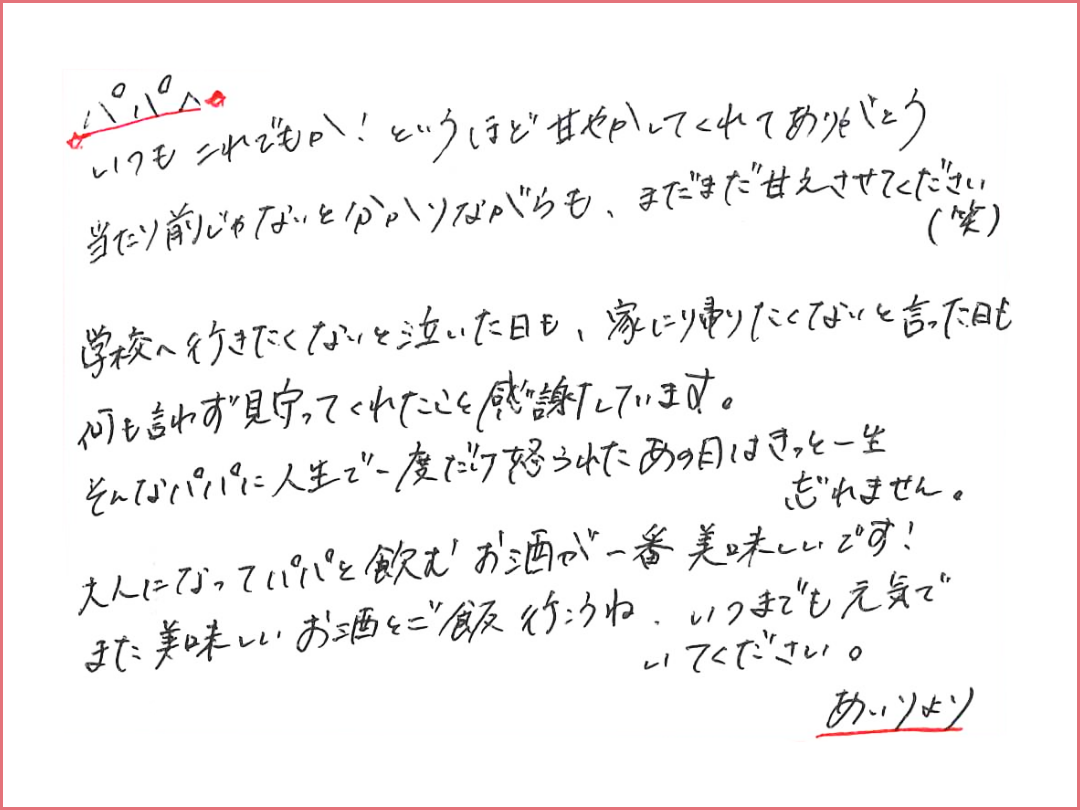 パパへ
いつもこれでもか！というほど甘やかしてくれてありがとう
当たり前じゃないと分かりながらも、まだまだ甘えさせてください
(笑)
学校へ行きたくないと泣いた日も、家に帰りたくないと言った日も
何も言わず見守ってくれたこと感謝しています。
そんなパパに人生で一度だけ怒られたあの日はきっと一生
忘れません。
大人になってパパと飲むお酒が一番美味しいです！
また美味しいお酒とご飯行こうね、いつまでも元気で
いてください。
あいりより